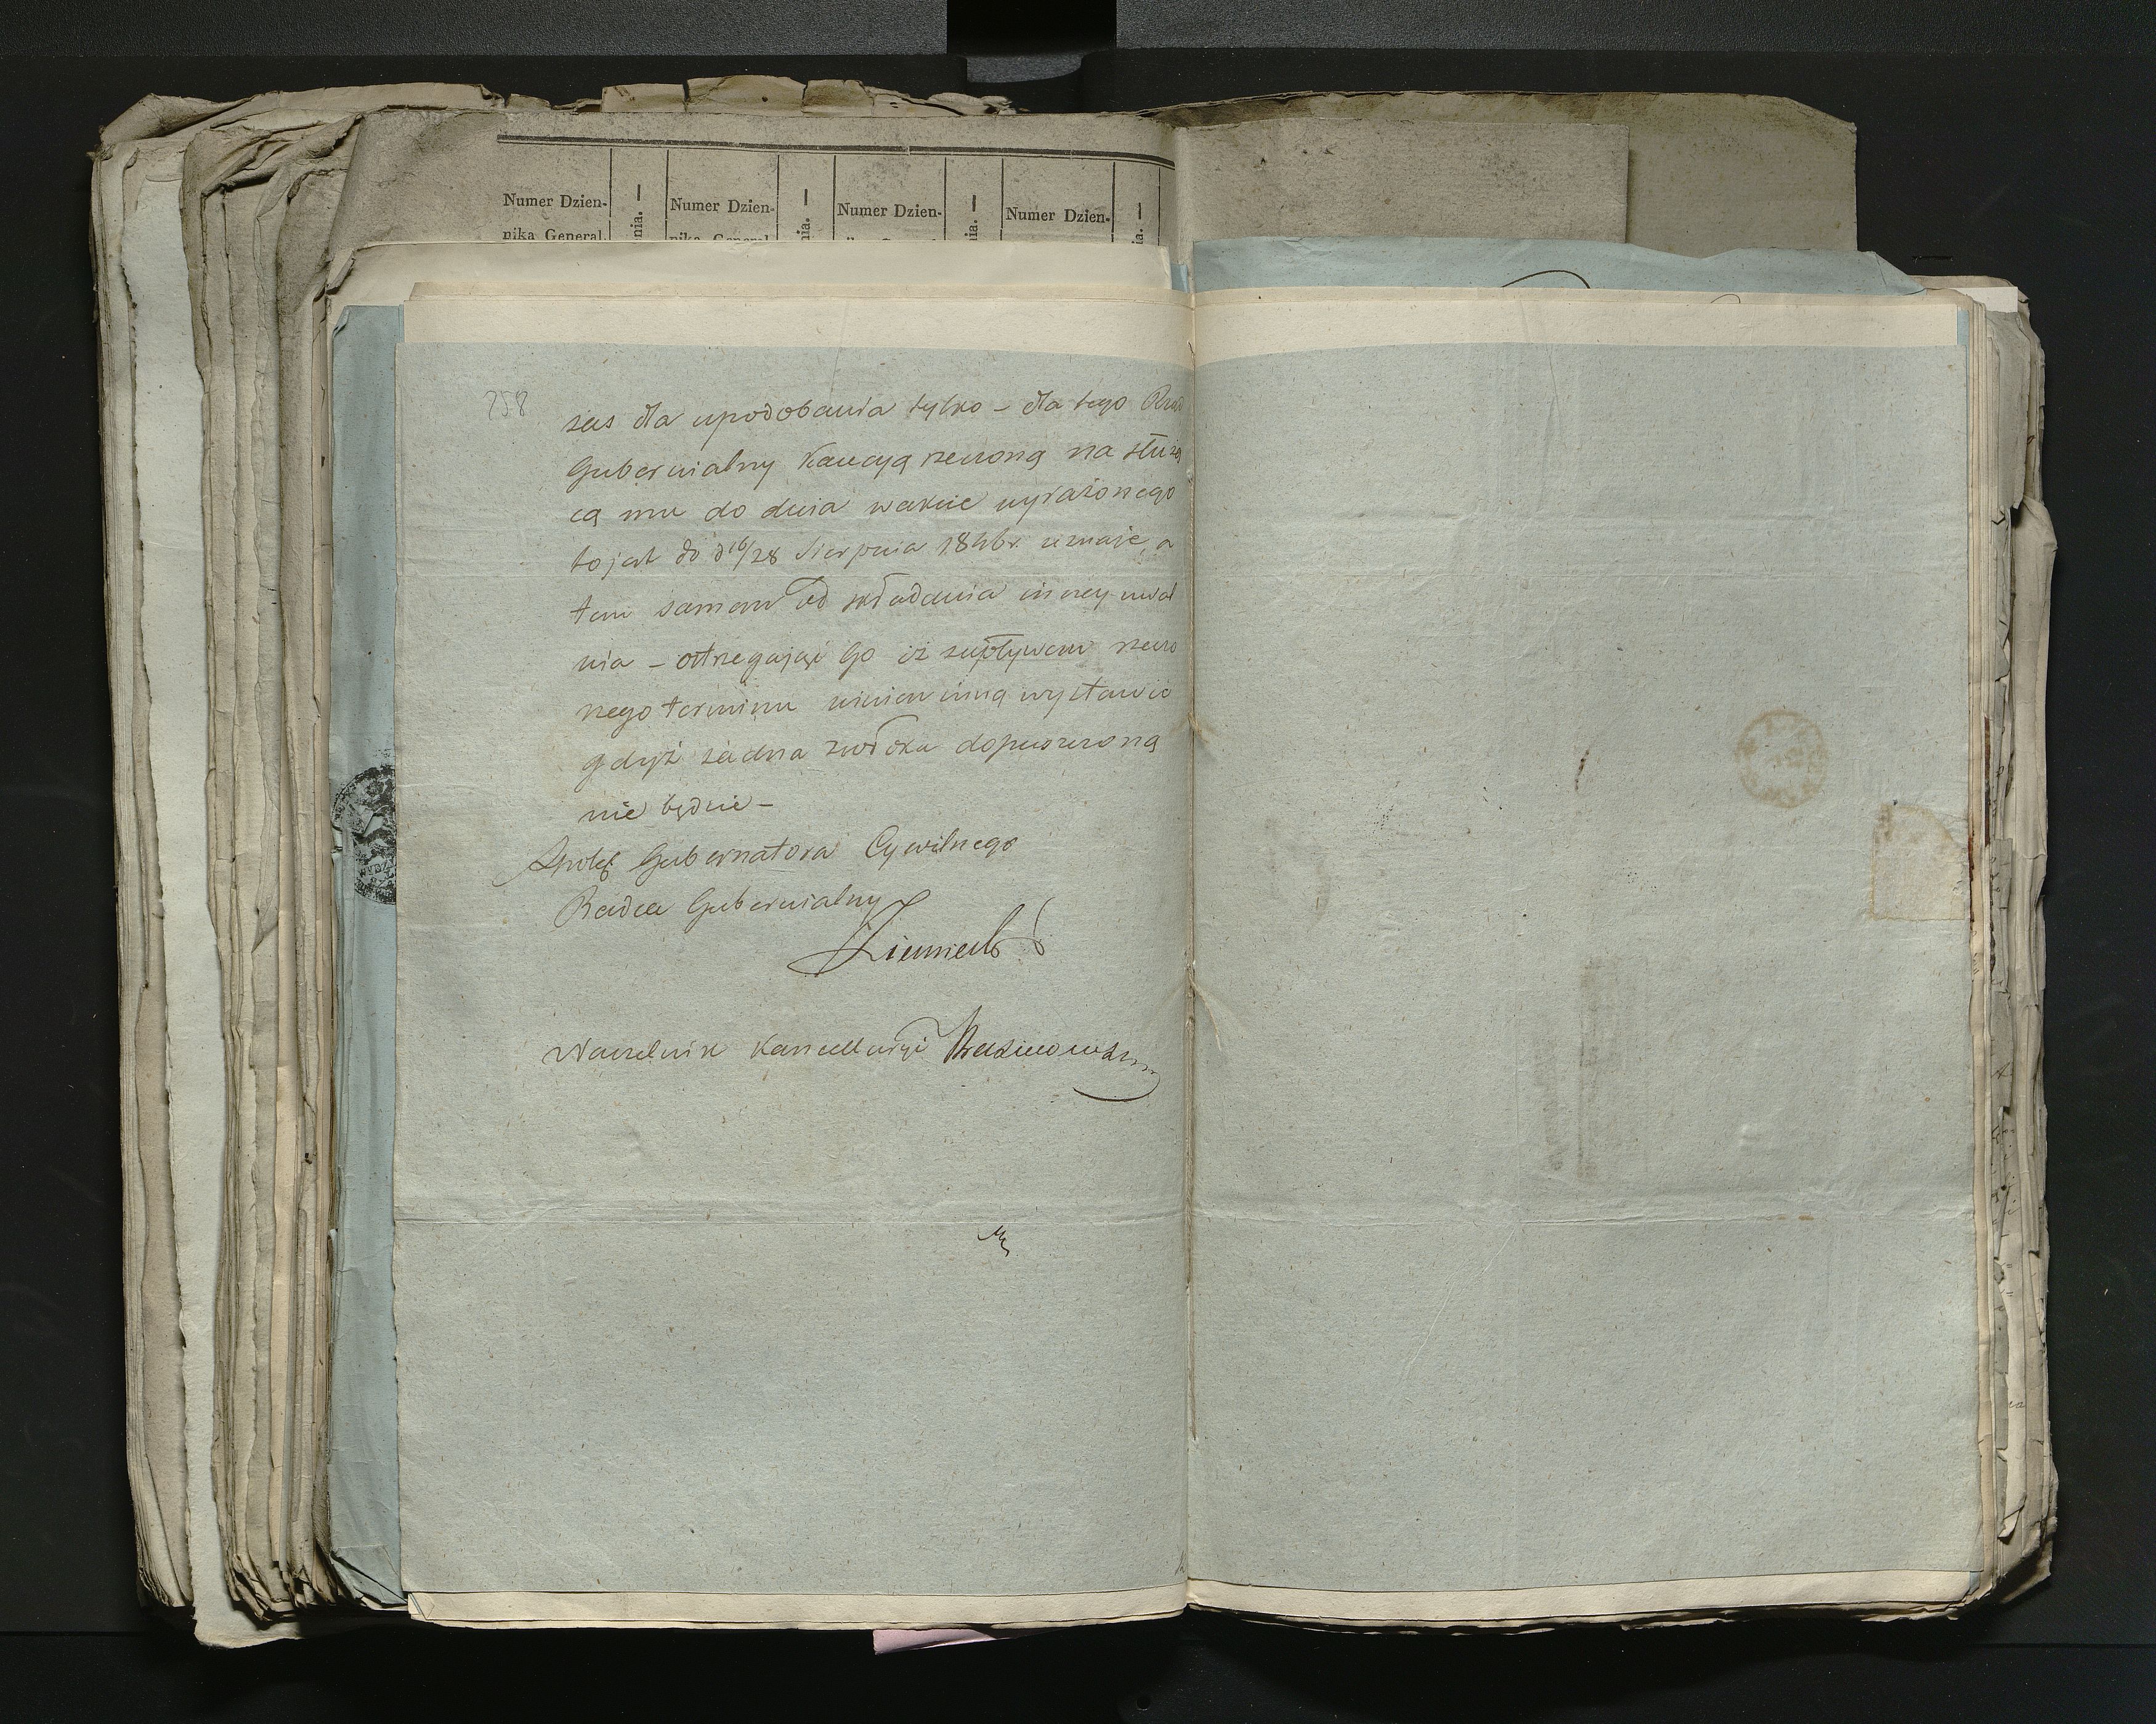 Numer Dzien- nia. Numer Dzien- nia. Numer Dzien- nia. Numer Dzien- ia.
nika General.
258
zas dla upodobania tylko – dla tego Rząd
Gubernialny Kaucyą rzeczoną na służą
cą mu do dnia w akcie wyrażonego
to jest do d 16/28 Sierpnia 1846 r. uznaje, a
tem samem od składania inney uwal
nia – ostrzegając Go iż z upływem rzeczo
nego terminu winien inną wystawić
gdyż żadna zwłoka dopuszczoną
nie będzie –
Gubernatora Cywilnego
Radca Gubernialny
Naczelnik Kancellaryi